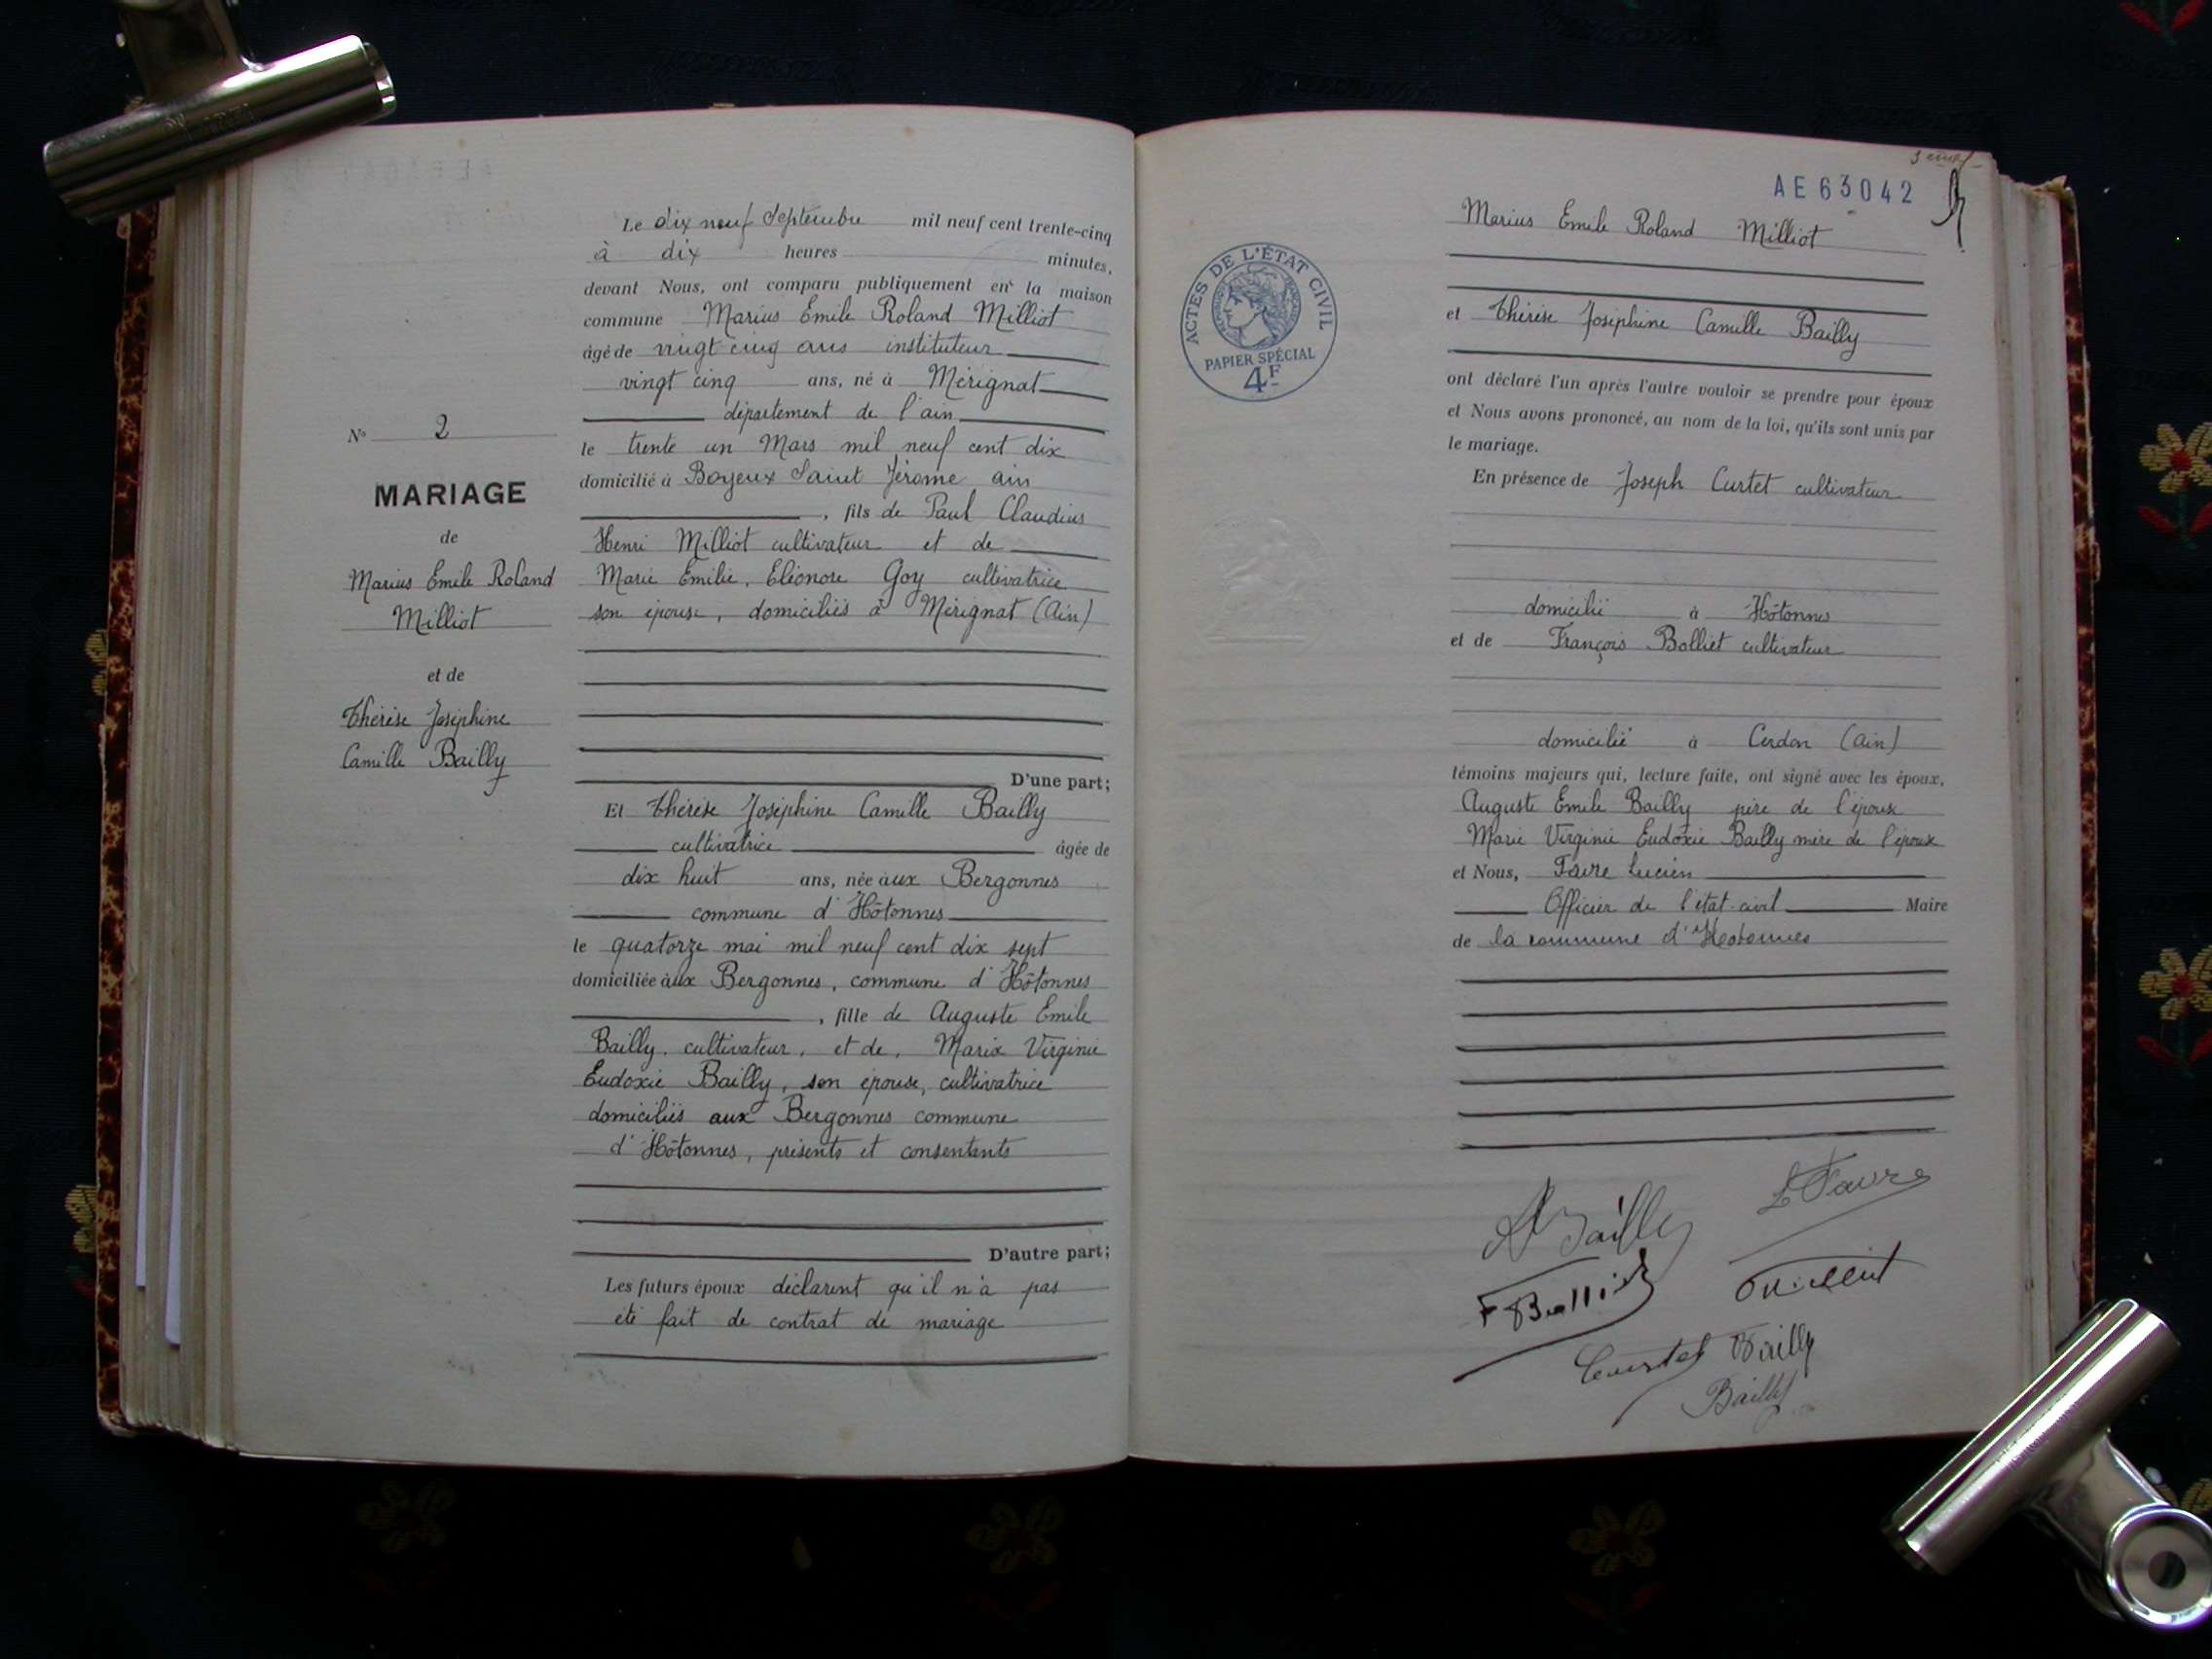 N° 2
MARIAGE
de
Marius Emile Roland
Milliot
et de
Thérèse Joséphine
Camille Bailly
Le dix neuf Septembre mil neuf cent trente-cinq
à dix heures minutes,
devant Nous, ont comparu publiquement en la maison
commune Marius Emile Roland Milliot
âgé de vingt cinq ans instituteur
vingt cinq ans, né à Mérignat
département de l'ain
le trente un Mars mil neuf cent dix
domicilié à Boyeux Saint Jérome ain
, fils de Paul Claudius
Henri Milliot cultivateur et de
Marie Emilie, Eléonore Goy cultivatrice
son épouse, domiciliés à Mérignat (Ain)
D'une part;
Et Thérèse Joséphine Camille Bailly
cultivatrice âgée de
dix huit ans, née àux Bergonnes
commune d'Hôtonnes
le quatorze mai mil neuf cent dix sept
domiciliée àux Bergonnes, commune d'Hôtonnes
, fille de Auguste Emile
Bailly, cultivateur, et de, Marie Virginie
Eudoxie Bailly, son épouse, cultivatrice
domiciliés aux Bergonnes commune
d'Hôtonnes, présents et consentants
D'autre part;
Les futurs époux déclarent qu'il n'a pas
été fait de contrat de mariage
AE63042
ACTES DE L'ÉTAT CIVIL
PAPIER SPÉCIAL
4F
Marius Emile Roland Milliot
et Thérèse Joséphine Camille Bailly
ont déclaré l'un après l'autre vouloir se prendre pour époux
et Nous avons prononcé, au nom de la loi, qu'ils sont unis par
le mariage.
En présence de Joseph Curtet cultivateur
domicilié à Hôtonnes
et de François Bolliet cultivateur
domicilié à Cerdon (Ain)
témoins majeurs qui, lecture faite, ont signé avec les époux,
Auguste Emile Bailly père de l'époux
Marie Virginie Eudoxie Bailly mère de l'époux
et Nous, Favre Lucien
Officier de l'état-civil Maire
de la commune d'Hotonnes
A Bailly L Favre
F Bolliet Milliot
Curtet Bailly
Bailly